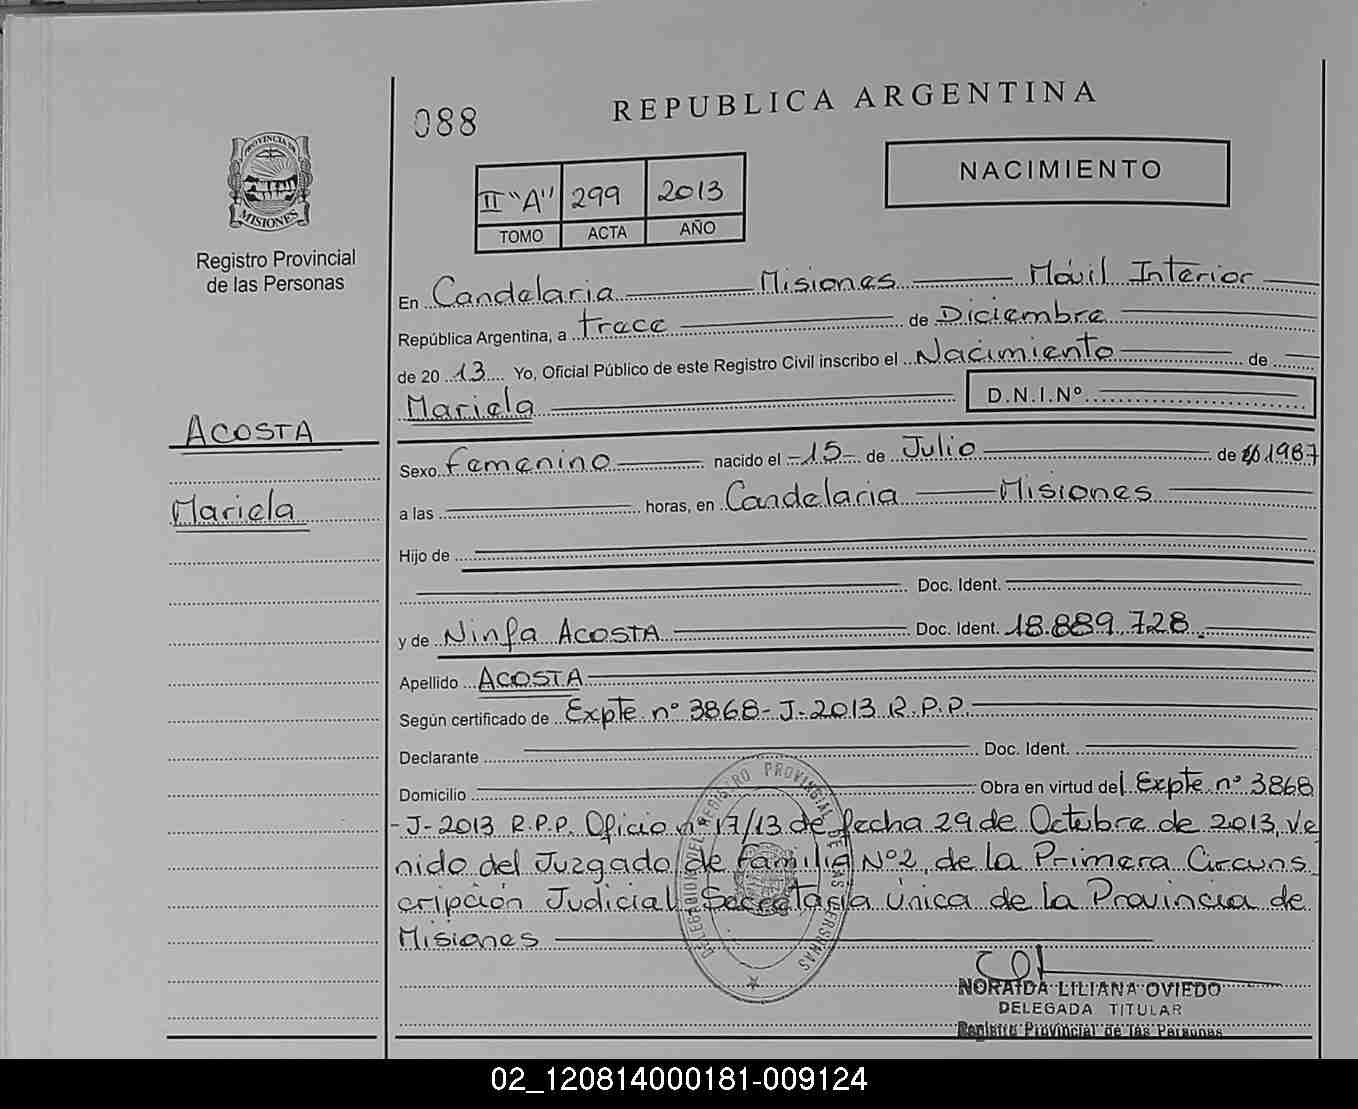 088
REPUBLICA ARGENTINA
NACIMIENTO
II "A" 299 2013
TOMO ACTA AÑO
PROVINCIA DE
MISIONES
Registro Provincial
de las Personas
En Candelaria Misiones Móvil Interior
República Argentina, a trece de Diciembre
de 20 13 Yo, Oficial Público de este Registro Civil inscribo el Nacimiento de
Mariela D.N.I.Nº
ACOSTA
Mariela
Sexo Femenino nacido el -15- de Julio de 1987
a las horas, en Candelaria Misiones
Hijo de
Doc. Ident.
y de Ninfa ACOSTA Doc. Ident. 18.889.728.
Apellido ACOSTA
Según certificado de Expte. nº 3868-J-2013 R.P.P.
Declarante Doc. Ident.
Domicilio Obra en virtud del Expte nº 3868
-J-2013 R.P.P. Oficio nº 17/13 de fecha 29 de Octubre de 2013, ve
nido del Juzgado de Familia Nº2, de la Primera Circuns
cripción Judicial Secretaría única de la Provincia de
Misiones
DELEGACION MOVIL REGISTRO PROVINCIAL DE LAS PERSONAS
NORAIDA LILIANA OVIEDO
DELEGADA TITULAR
Registro Provincial de las Personas
02_120814000181-009124